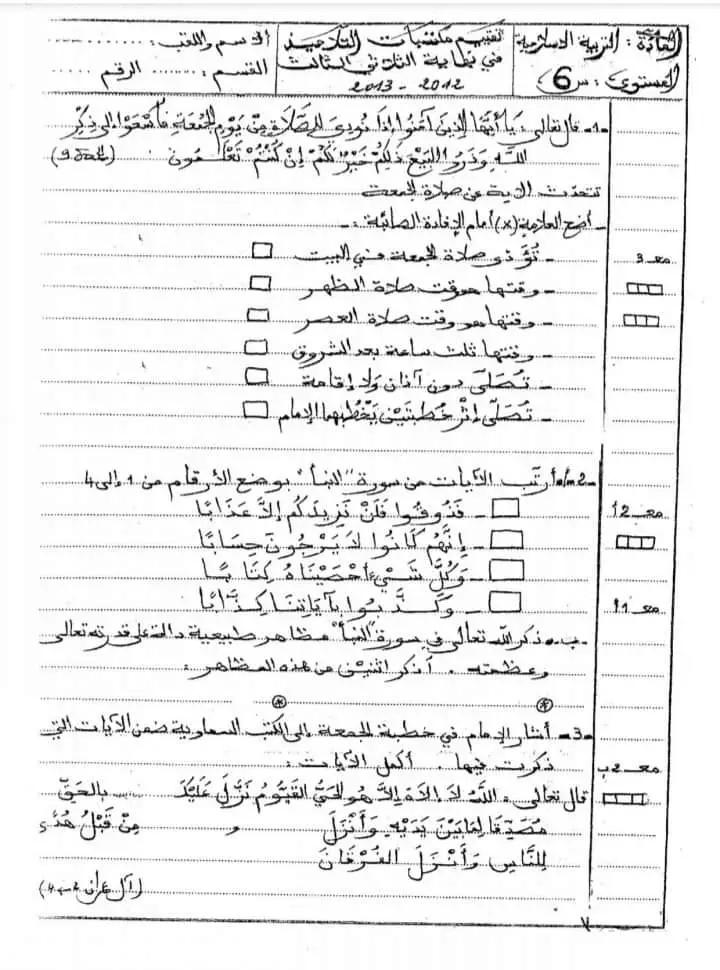 المادة : التربية الاسلامية
المستوى : س 6
تقييم مكتسبات التلاميذ
في نهاية الثلاثي الثالث
2012 - 2013
الاسم واللقب : ...........
القسم : ....... الرقم .....
-1- قال تعالى : يَا أَيُّهَا الَّذِينَ آمَنُوا إِذَا نُودِيَ لِلصَّلَاةِ مِنْ يَوْمِ الْجُمُعَةِ فَاسْعَوْا إِلَى ذِكْرِ
اللَّهِ وَذَرُوا الْبَيْعَ ذَلِكُمْ خَيْرٌ لَكُمْ إِنْ كُنْتُمْ تَعْلَمُونَ (الجمعة 9)
تتحدّث الآية عن صلاة الجمعة
- أضع العلامة (x) أمام الإفادة الصائبة : -
مع 3
- تُؤَدَّى صلاة الجمعة في البيت
- وقتها هو وقت صلاة الظهر
- وقتها هو وقت صلاة العصر
- وقتها ثلث ساعة بعد الشروق
- تُصَلَّى دون آذان ولا إقامة
- تُصَلَّى إثْرَ خُطبتَيْن يَخْطُبهما الإمام
-2- أ أرتّب الآيات من سورة "النبأ" بوضع الأرقام من 1 إلى 4
مع 12
- فَذُوقُوا فَلَنْ نَزِيدَكُم إلاَّ عَذَابًا
- إِنَّهُمْ كَانُوا لاَ يَرْجُونَ حِسَابًا
- وَكُلَّ شَيْءٍ أَحْصَيْنَاهُ كِتَابًا
مع 11
- وَكَذَّبُوا بِآيَاتِنَا كِذَّابًا
- ب - ذكر الله تعالى في سورة "النبأ" مظاهر طبيعية دالة على قدرته تعالى
وعظمته . أذكر اثنين من هذه المظاهر :
* *
-3- أشار الإمام في خطبة الجمعة إلى الكتب السماوية ضمن الآيات التي
ذكرت فيها . أكمل الآيات :
مع 2 ب
قال تعالى : اللَّهُ لاَ إِلاَهَ إِلاَّ هُوَ الْحَيُّ القَيُّومُ نَزَّلَ عَلَيْكَ ..... بالحَقِّ
مُصَدِّقًا لِمَا بَيْنَ يَدَيْهِ وَأَنْزَلَ و مِنْ قَبْلُ هُدًى
لِلنَّاسِ وَأَنْزَلَ الفُرْقَانَ